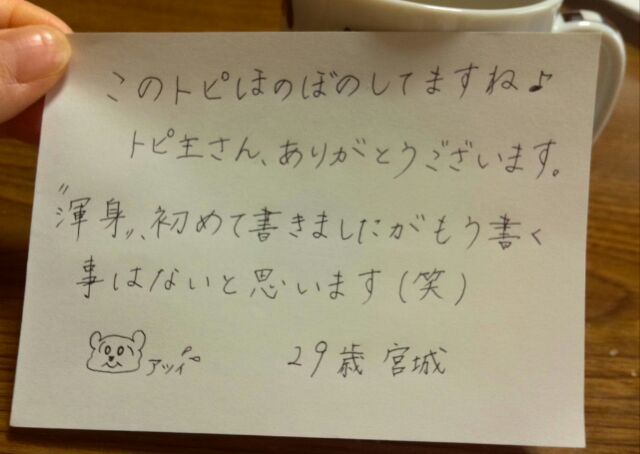 このトピほのぼのしてますね♪
トピ主さん、ありがとうございます。
〝渾身〟、初めて書きましたがもう書く
事はないと思います(笑)
アツイ
29歳 宮城